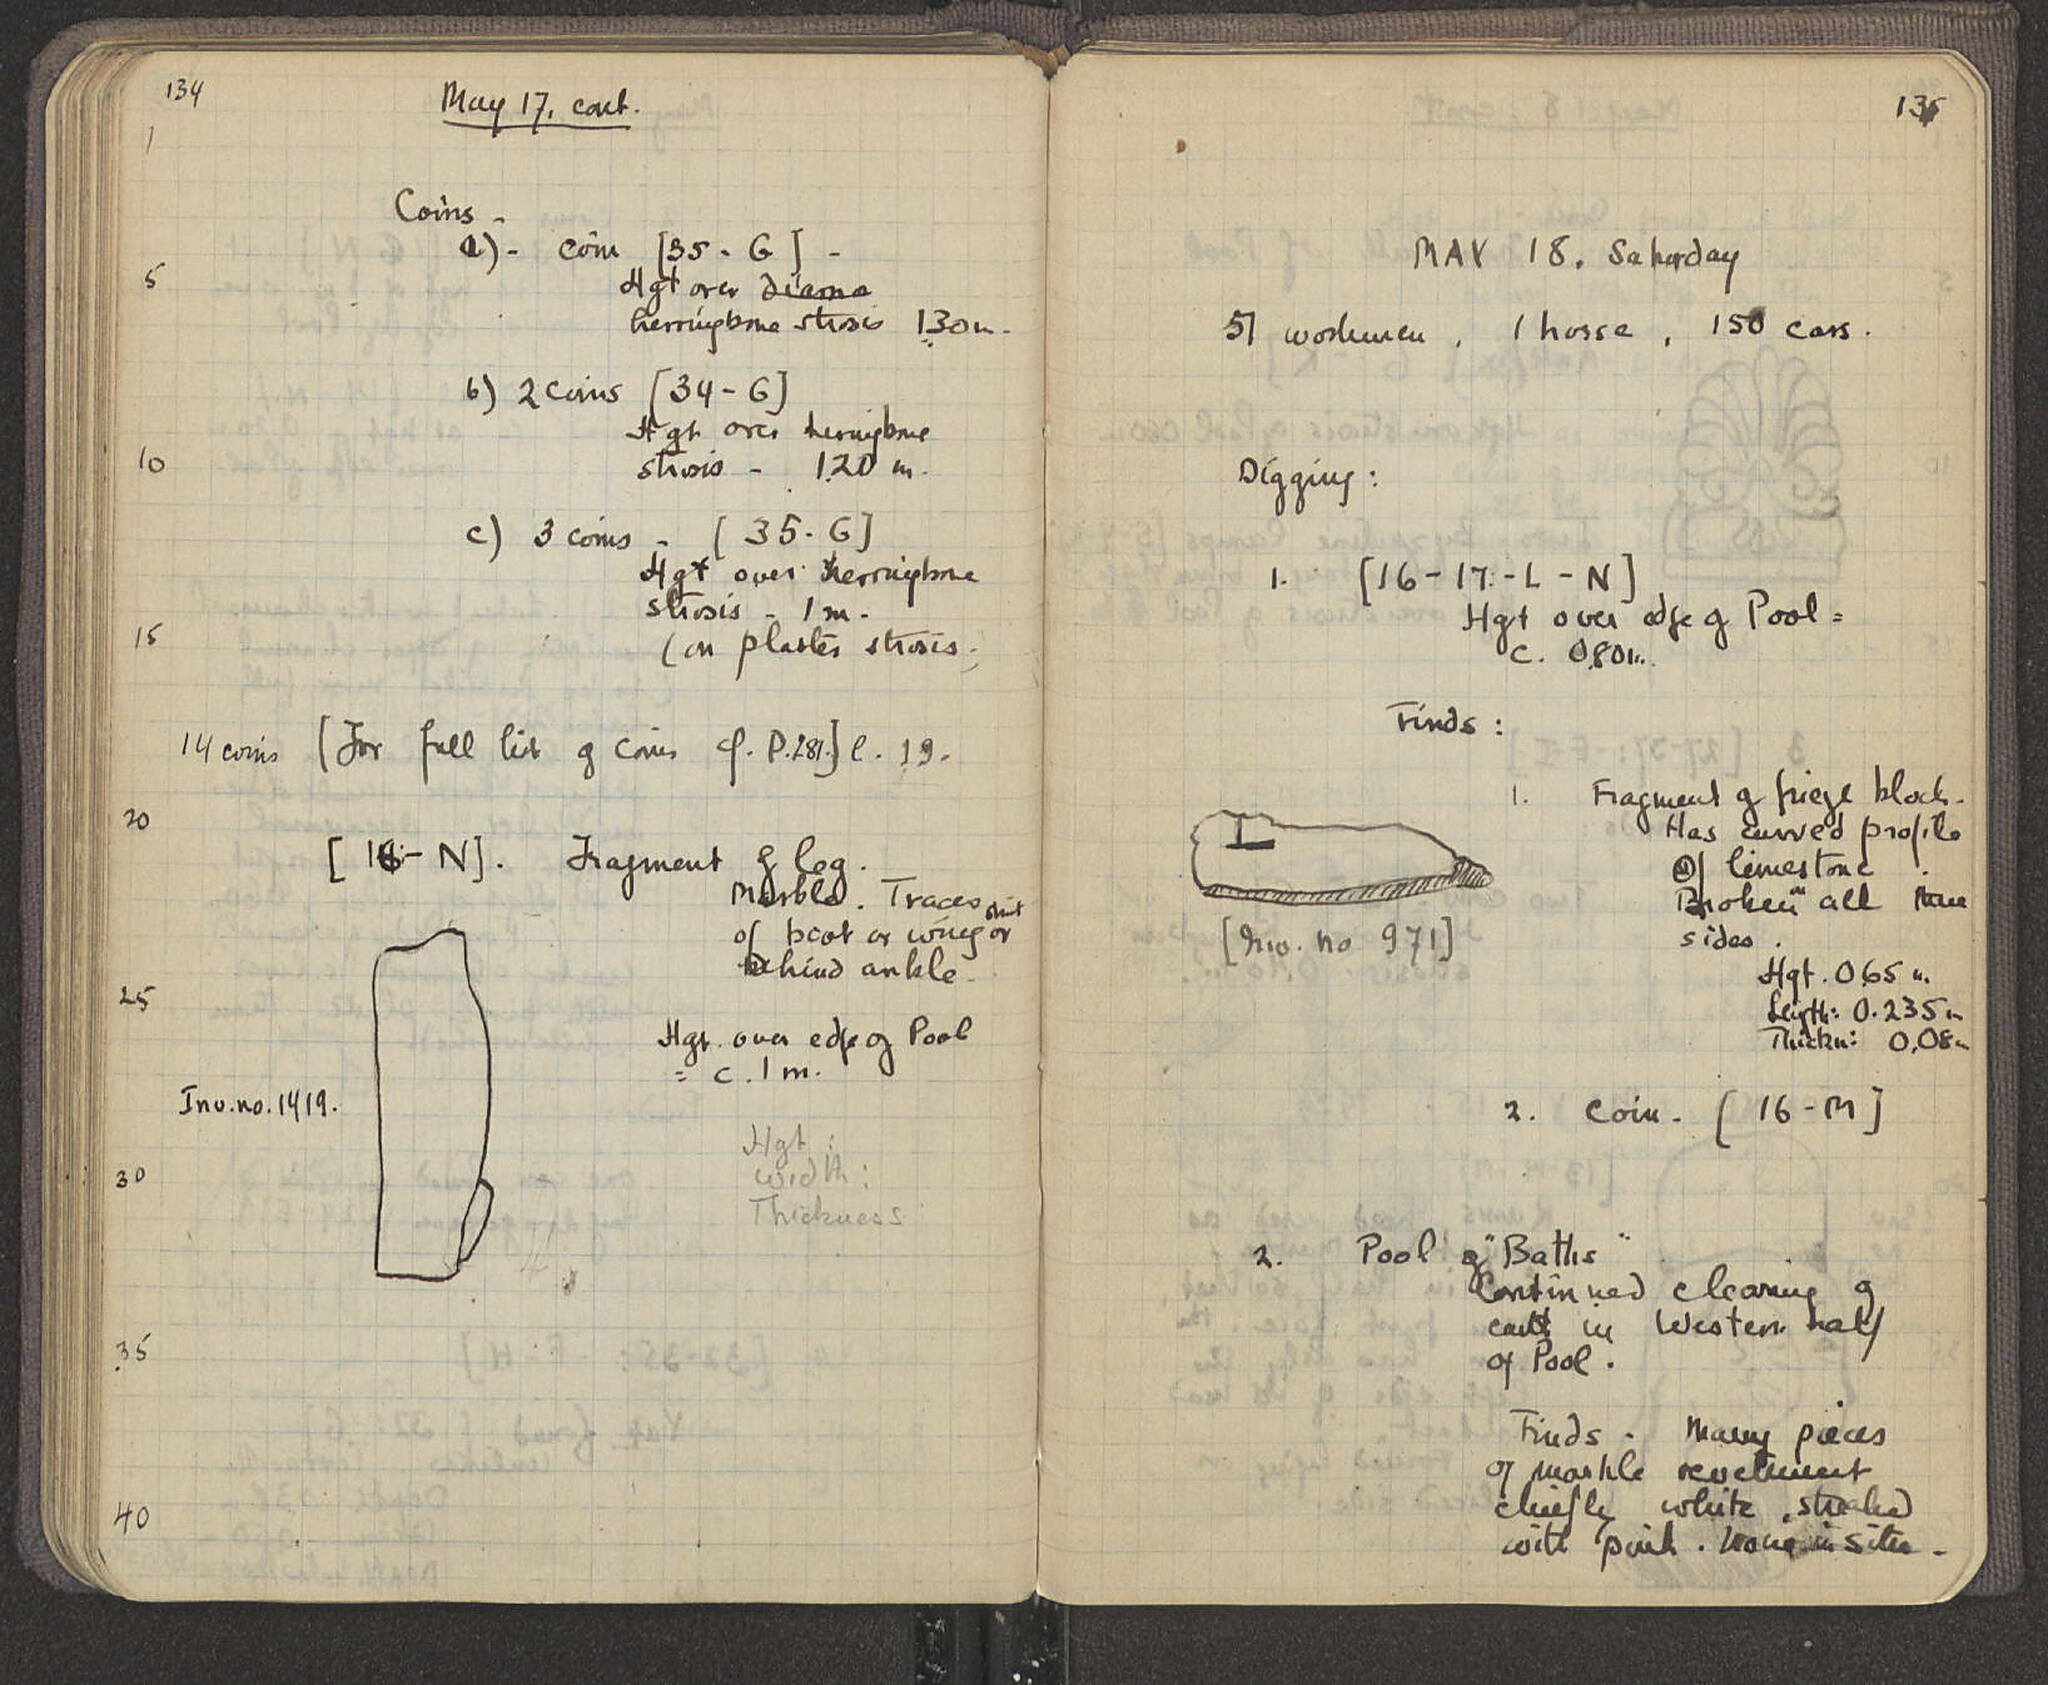 134
May 17. cont.
1
Coins -
a) - coin [35 - G] -
5
Hgt over diama
herringbone strosis 1.30 m.
b) 2 coins [34 - G]
Hgt over herringbone
10
strosis - 1.20 m.
c) 3 coins - [35 - G]
Hgt over herringbone
strosis - 1 m.
15
(on plaster strosis.)
14 coins [For full list of coins cf. P. 281.] l. 19.
20
[16 - N]. Fragment of leg.
Marble. Traces
of boot or wing or
behind ankle.
25
Hgt. over edge of Pool
= c. 1 m.
Inv. no. 1419.
Hgt :
30
width :
Thickness
35
40
135
MAY 18. Saturday
51 workmen, 1 horse, 150 cars.
Digging :
1. [16 - 17 - L - N]
Hgt over edge of Pool =
c. 0.80 m.
Finds :
1. Fragment of frieze block.
Has curved profile
Of limestone.
Broken on all
sides.
[Inv. no 971]
Hgt. 0.65 m.
Length: 0.235 m
Thickn: 0.08 m
2. Coin - [16 - M]
2. Pool of "Baths"
Continued clearing of
earth in Western half
of Pool.
Finds - Many pieces
of marble revetment
chiefly white, streaked
with pink. None in situ -